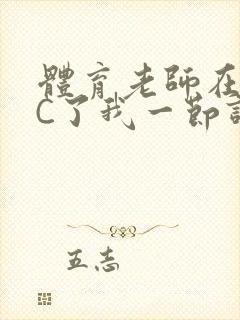 體育老師在
C了我一節
五志